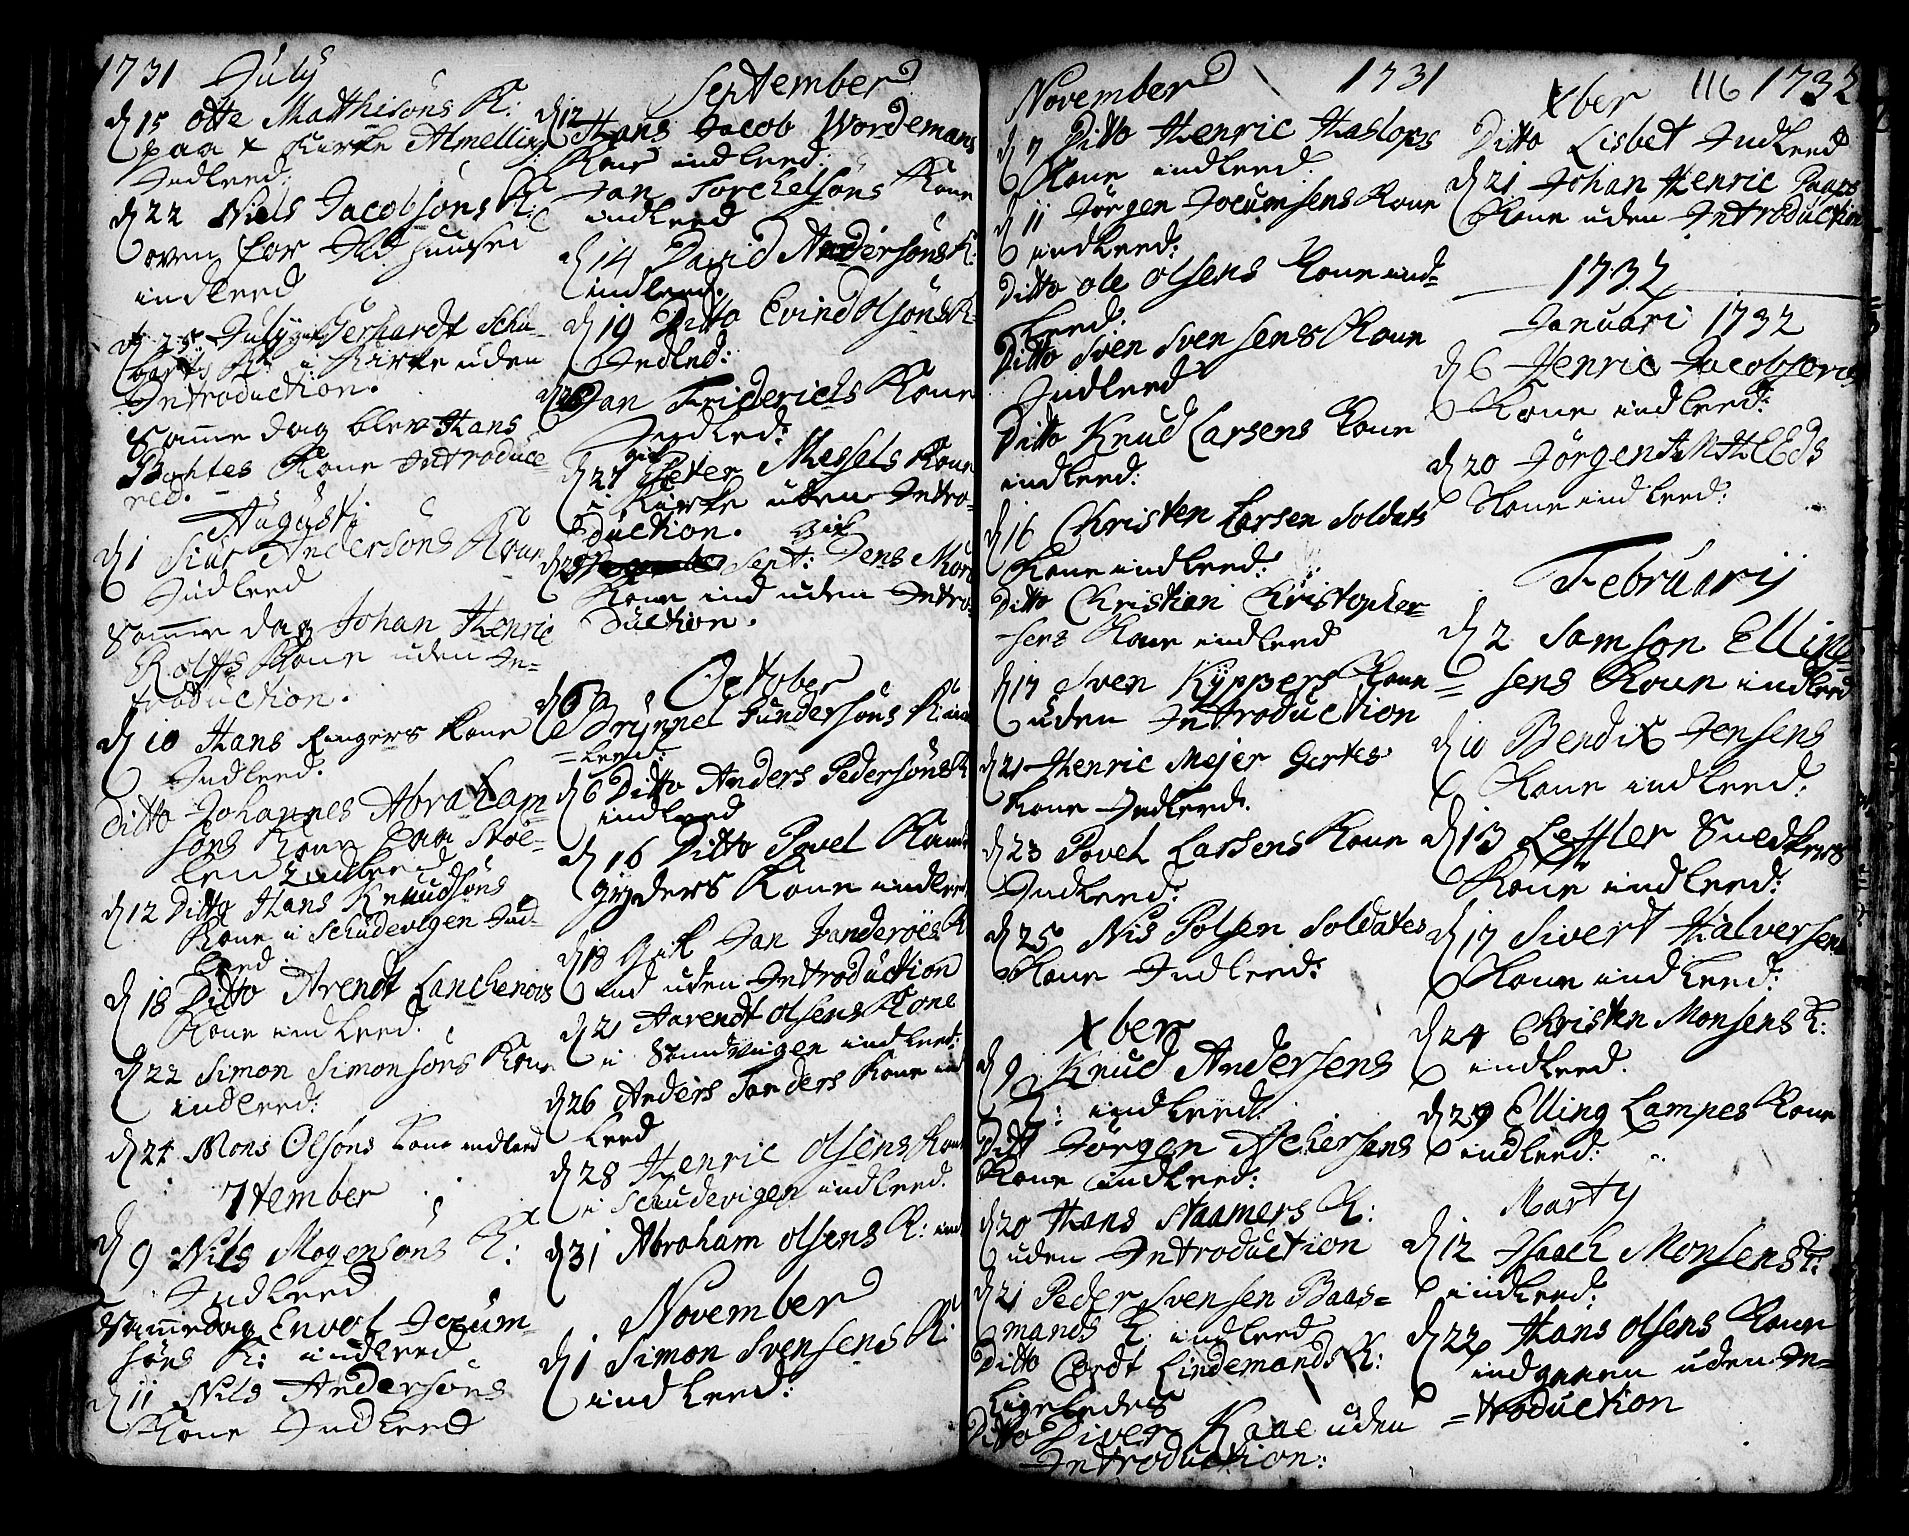 1731 July
d 15 Otte Matthisöns K:
paa Kirke Almelling
Indleed:
d 22 Niels Jacobsöns K:
oven for Ild huuset
indleed
d 25 July Gerhardt Schu-
barts K: i Kirke uden
Introduction.
Samme dag blev Hans
Bahtes Kone Introduce-
red.
Augusti
d 1 Siur Andersöns Kone
Indleed
Samme dag Johan Henric
Rolfs Kone uden In-
troduction.
d 10 Hans Fingers Kone
Indleed.
Ditto Johannes Abraham-
söns Kone paa Stoe-
len Indleed
d 12 Ditto Hans Knudsöns
Kone i Schudevigen Ind-
leed.
d 18 Ditto Arendt Lanchenous
Kone indleed.
d 22 Simon Simonsöns Kone
indleed:
d 24 Mons Olsöns Kone indleed
7tember
d 9 Nils Mogensöns K:
Indleed
Samedag Envol Jocum-
söns K: indleed
d 11 Nils Andersöns
Kone Indleed
September
d 12 Hans Jacob Wordemans
Kone indleed:
Jan Torchelsöns Kone
indleed
d 14 David Andersöns K:
indleed.
d 19 Ditto Evind Olsöns K:
Indled:
Jan Friderichs Kone
Indled:
gik
d 27 Peter Messels Kone
i Kirke uden Intro-
duction. gik
d 28 Sept: Jens Mör
Kone ind uden Intro-
duction.
October
d 6 Brynnel Gundersöns K ind
=leed:
d 6 Ditto Anders Pedersöns K
indleed
d 16 Ditto Povel Kande
gyders Kone indleed
d 18 Gik Jan Vanderöes K
ind uden Introduction
d 21 Aarendt Olsens Kone
i Sandvigen indleed:
d 26 Anders Tanders Kone ind
leed
d 28 Henric Olsens Kone
i Scudevigen indleed.
d 31 Abraham Olsens K: ind
November
d 1 Simon Svensens K:
indleed:
November 1731
d 7 Ditto Henric Haslops
Kone indleed.
d 11 Jörgen Jocumsens Kone
indleed:
Ditto Ole Olsens Kone ind=
leed:
Ditto Sven Svensens Kone
Indleed
Ditto Knud Larsens Kone
indleed:
d 16 Christen Larsen Soldats
Kone indleed:
Ditto Christian Christopher=
-sens Kone indleed
d 17 Sven Kyppers Kone
uden Introduction
d 21 Henric Mejer Gertes
Kone Indleed.
d 23 Povel Larsens Kone
Indleed:
d 25 Nis Polsen Soldates
Kone Indleed:
Xber
d 9 Knud Andersens
K: indleed:
Ditt Jörgen Achersens
Kone indleed:
d 20 Hans Staamers K:
uden Introduction
d 21 Peder Svensen Baas=
mands K: indleed
Ditto Cordt Lindemands K:
Ligeledes
Ditto Siver Kaae uden
Introduction:
Xber 116 1732
Ditto Lisbet Indleed
d 21 Johan Henric Paaps
Kone uden Introduction
1732
Januari 1732
d 6 Henric Jacobsens
Kone indleed:
d 20 Jörgen
Kone indleed:
Februarij
d 2 Samson Elling=
= sens Kone indleed
d 10 Bendix Jensens
Kone indleed:
d 13 Leffler Snedkers
Kone indleed:
d 17 Sivert Halversens
Kone indleed:
d 24 Christen Monsens K:
indleed.
d 29 Elling Lampes Kone
indleed:
Marty
d 12 Isach Monsens K:
indleed:
d 22 Hans Olsens Kone
indgaaen uden In=
=troduction